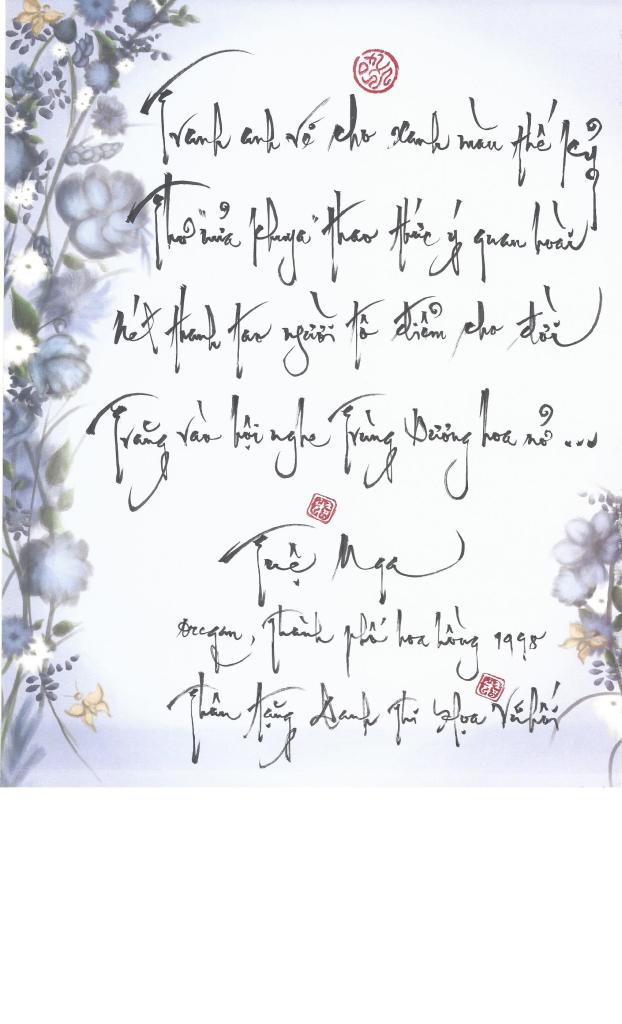 Tranh anh vẽ cho xanh màu thế kỷ
Thơ "nửa khuya" thao thức ý quan hoài
Nét thanh tao người tô điểm cho đời
Trăng vào hội nghe Trùng Dương hoa nở ...
Tuệ Nga
Oregon, Thành phố hoa hồng 1998
Thân tặng Danh Thi Họa Vũ Hối